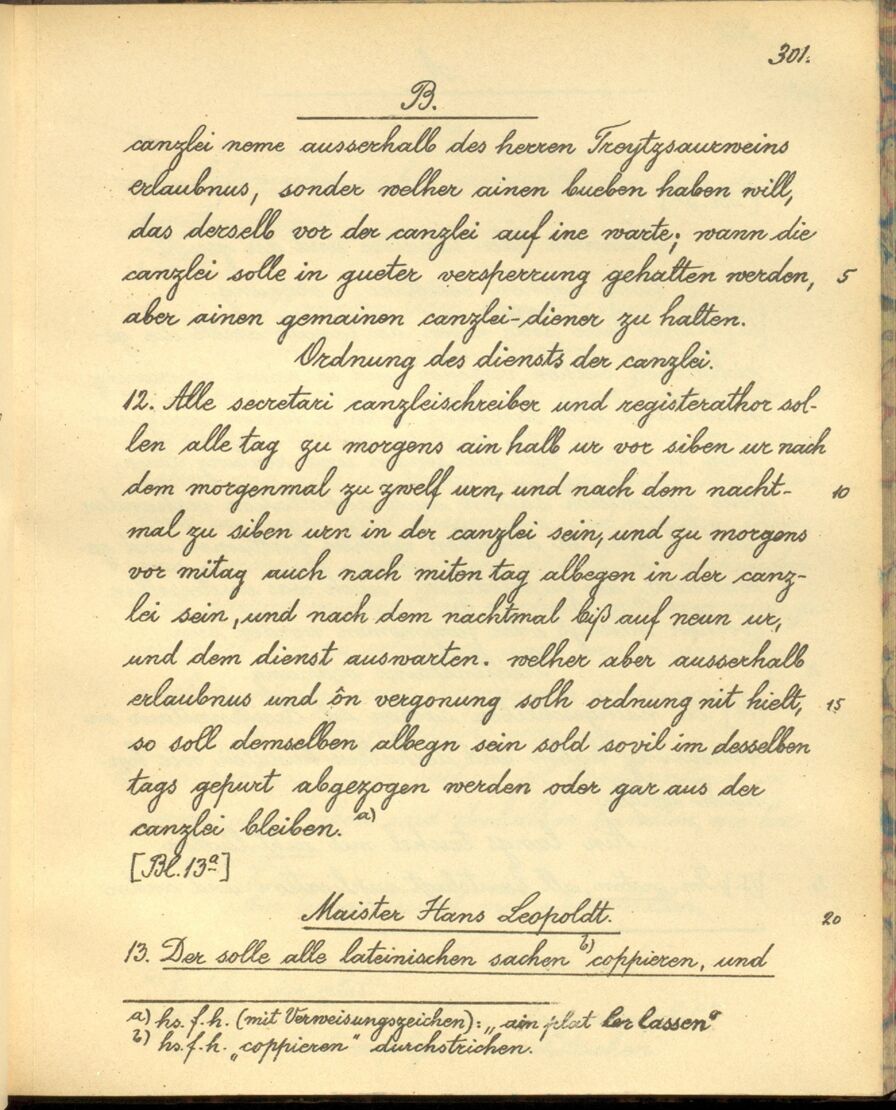 301.
B.
canzlei neme ausserhalb des herren Treytzsaurweins
erlaubnus, sonder welher ainen bueben haben will,
das derselb vor der canzlei auf ine warte; wann die
canzlei solle in gueter versperrung gehalten werden, 5
aber ainen gemainen canzlei-diener zu halten.
Ordnung des diensts der canzlei.
12. Alle secretari canzleischreiber und registerathor sol-
len alle tag zu morgens ain halb ur vor siben ur nach
dem morgenmal zu zwelf urn, und nach dem nacht- 10
mal zu siben urn in der canzlei sein, und zu morgens
vor mitag auch nach miten tag albegen in der canz-
lei sein, und nach dem nachtmal biß auf neun ur,
und dem dienst auswarten. welher aber ausserhalb
erlaubnus und ôn vergonung solh ordnung nit hielt, 15
so soll demselben albegn sein sold sovil im desselben
tags gepurt abgezogen werden oder gar aus der
canzlei bleiben. a)
[Bl. 13a]
Maister Hans Leopoldt. 20
13. Der solle alle lateinischen sachen b) coppieren, und
a) hs. f. h. (mit Verweisungszeichen): „ain plat ler lassen"
b) hs. f. h. „coppieren" durchstrichen.